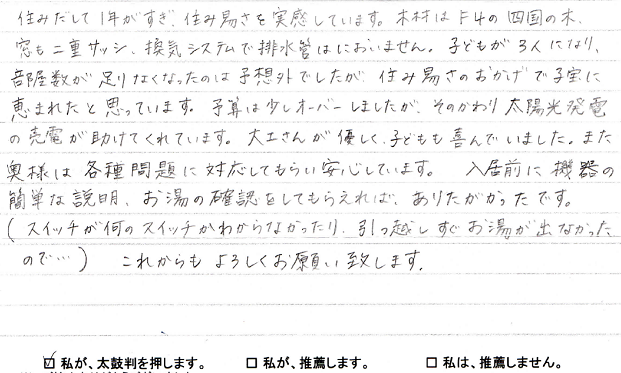 住みだして1年がすぎ、住み易さを実感しています。木材はF4の四国の木、
窓も二重サッシ、換気システムで排水管はにおいません。子どもが3人になり、
部屋数が足りなくなったのは予想外でしたが、住み易さのおかげで子宝に
恵まれたと思っています。予算は少しオーバーしましたが、そのかわり太陽光発電
の売電が助けてくれています。大工さんが優しく、子どもも喜んでいました。また
奥様は各種問題に対応してもらい安心しています。 入居前に機器の
簡単な説明、お湯の確認をしてもらえれば、ありたがかったです。
(スイッチが何のスイッチかわからなかったり、引っ越しすぐお湯が出なかった
ので…) これからもよろしくお願い致します。
☑ 私が、太鼓判を押します。 □ 私が、推薦します。 □ 私は、推薦しません。